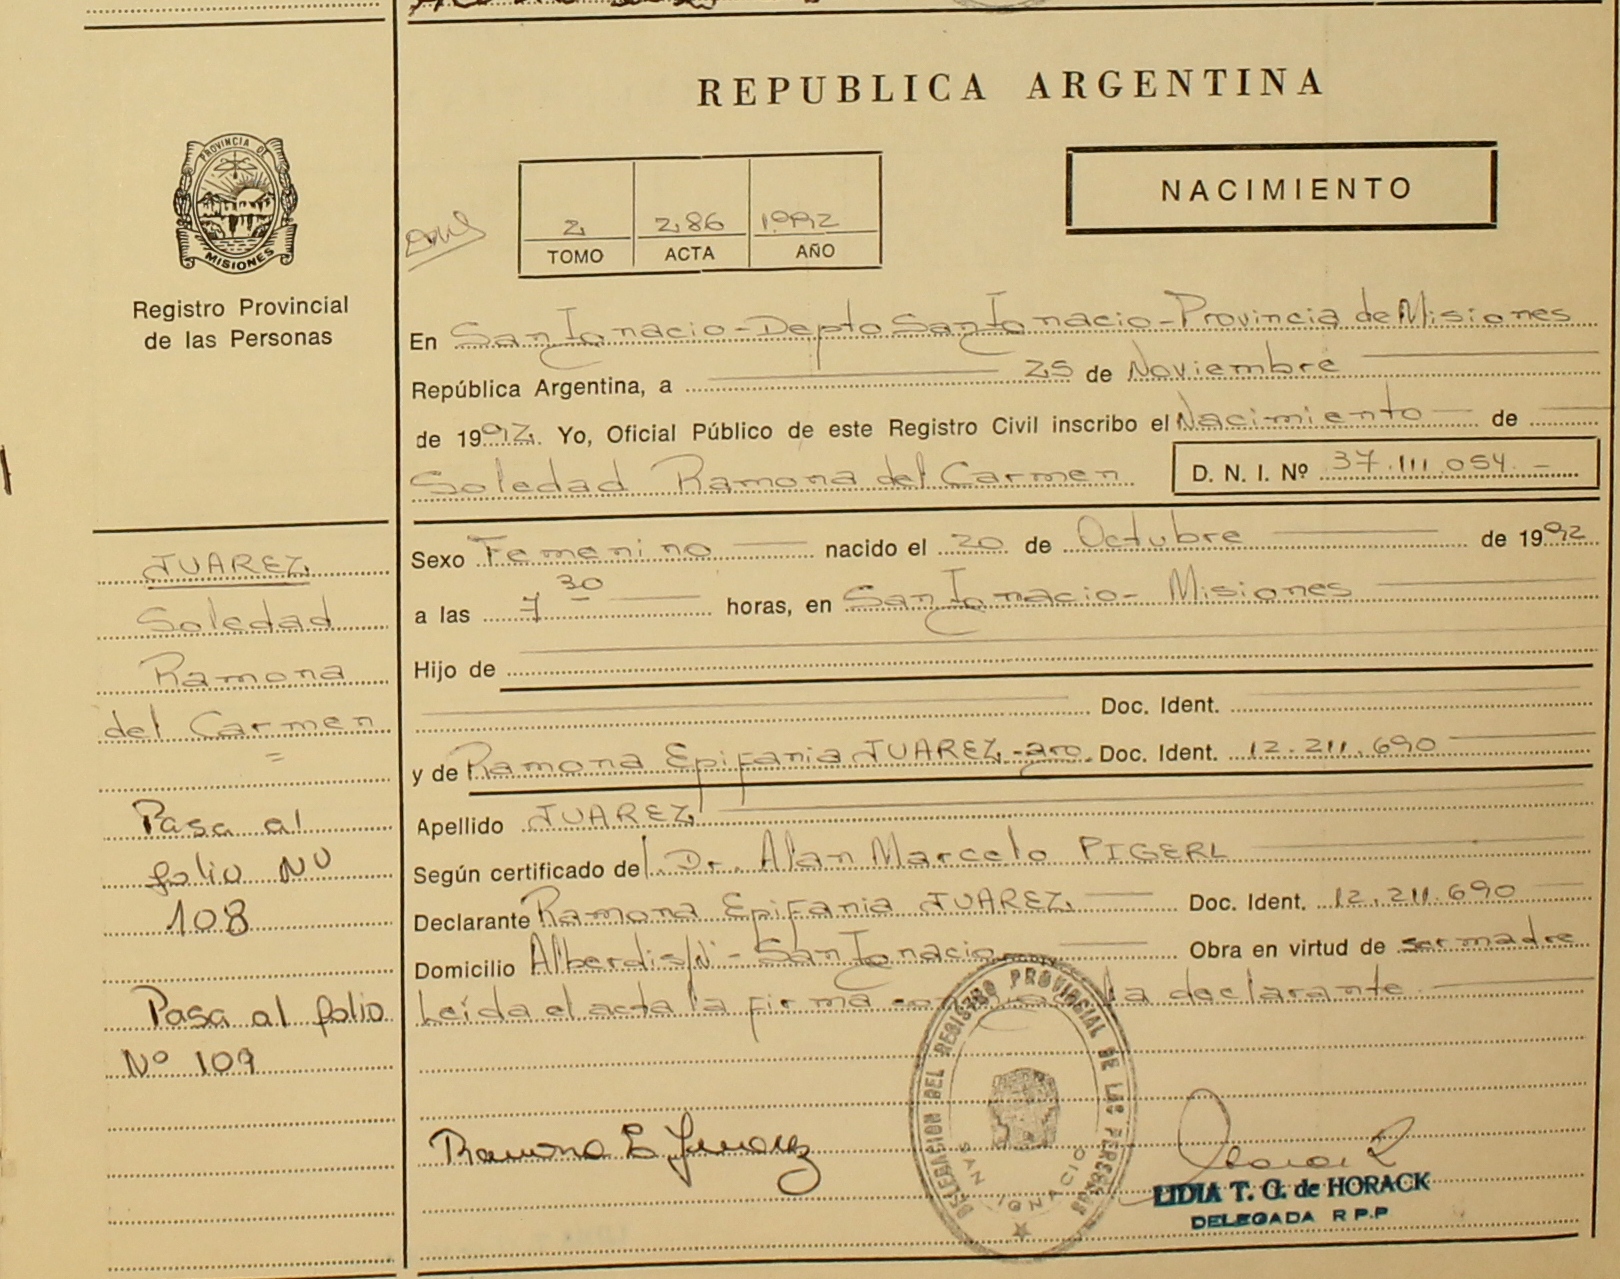 REPUBLICA ARGENTINA
PROVINCIA DE
MISIONES
Registro Provincial
de las Personas
2 286 1992
TOMO ACTA AÑO
NACIMIENTO
En San Ignacio - Depto San Ignacio - Provincia de Misiones
República Argentina, a 25 de Noviembre
de 1992. Yo, Oficial Público de este Registro Civil inscribo el Nacimiento de
Soledad Ramona del Carmen D. N. I. Nº 37.111.054.-
Sexo Femenino nacido el 20 de Octubre de 1992
a las 7 30 horas, en San Ignacio - Misiones
Hijo de
Doc. Ident.
y de Ramona Epifania JUAREZ - arg. Doc. Ident. 12.211.690
Apellido JUAREZ
Según certificado del Dr. Alan Marcelo PIGERL
Declarante Ramona Epifania JUAREZ Doc. Ident. 12.211.690
Domicilio Alberdi s/Nº - San Ignacio Obra en virtud de ser madre
Leída el acta la firma conmigo la declarante
JUAREZ
Soledad
Ramona
del Carmen
=
Pasa al
folio Nº
108
Pasa al folio
Nº 109
Ramona E Juarez
DELEGACION DEL REGISTRO PROVINCIAL DE LAS PERSONAS
SAN IGNACIO
LIDIA T. G. de HORACK
DELEGADA R P.P